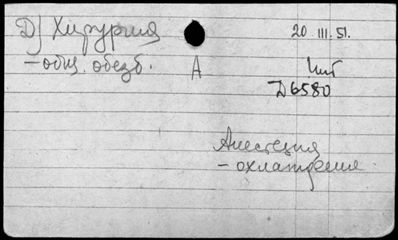 Д) Хирургия
20 III. 51.
– общ. обезб. А
Шт
Д6580
Анестезия
– охлаждение